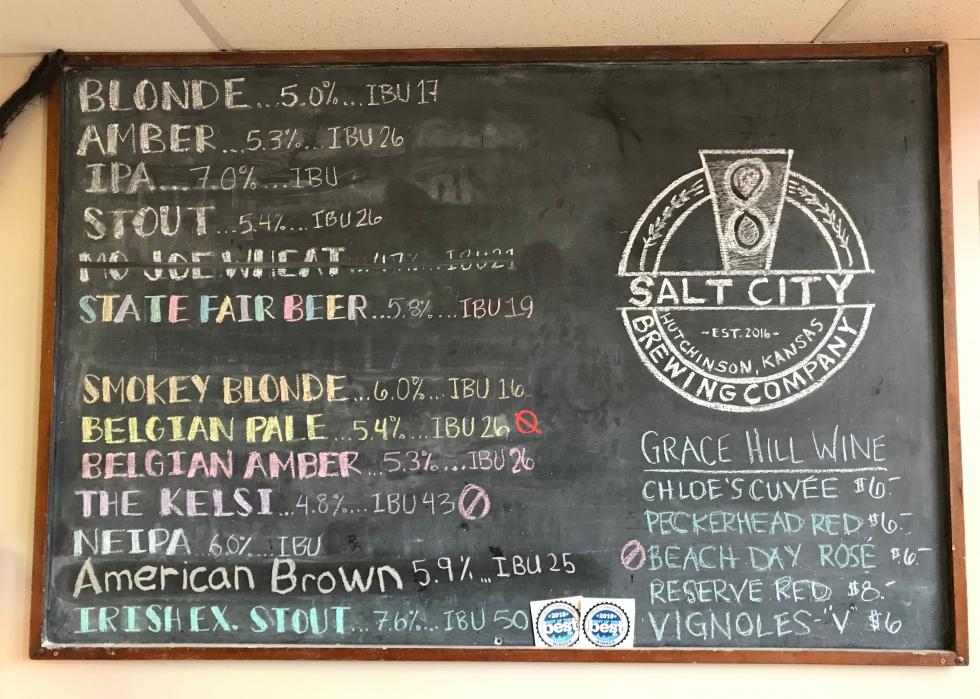 BLONDE...5.0%...IBU 17
AMBER...5.3%...IBU 26
IPA...7.0%...IBU
STOUT...5.4%...IBU 26
MO JOE WHEAT...4.7%...IBU 21
STATE FAIR BEER...5.8%...IBU 19
SMOKEY BLONDE...6.0%...IBU 16
BELGIAN PALE...5.4%...IBU 26
BELGIAN AMBER...5.3%...IBU 26
THE KELSI...4.8%...IBU 43
NEIPA...6.0%...IBU
American Brown 5.9%...IBU 25
IRISH EX. STOUT...7.6%...IBU 50
2018
best
2018
best
SALT CITY
-EST. 2016-
HUTCHINSON, KANSAS
BREWING COMPANY
GRACE HILL WINE
CHLOE'S CUVÉE $6-
PECKERHEAD RED $6-
BEACH DAY ROSÉ $6-
RESERVE RED $8-
VIGNOLES-"V" $6